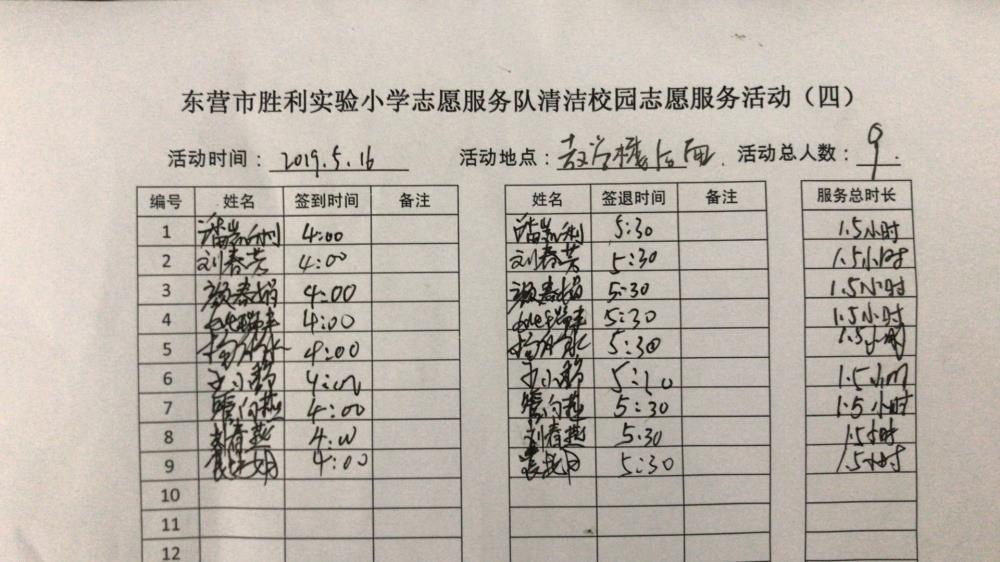 东营市胜利实验小学志愿服务队清洁校园志愿服务活动（四）
活动时间：2019.5.16 活动地点：教学楼后面 活动总人数：9.
编号 姓名 签到时间 备注 姓名 签退时间 服务总时长
1 4:00 5:30 1.5小时
2 刘春芳 4:00 刘春芳 5:30 1.5小时
3 颜春娟 4:00 颜春娟 5:30 1.5小时
4 4:00 5:30 1.5小时
5 4:00 5:30 1.5小时
6 4:00 5:30 1.5小时
7 4:00 5:30 1.5小时
8 刘春燕 4:00 刘春燕 5:30 1.5小时
9 4:00 5:30 1.5小时
10
11
12